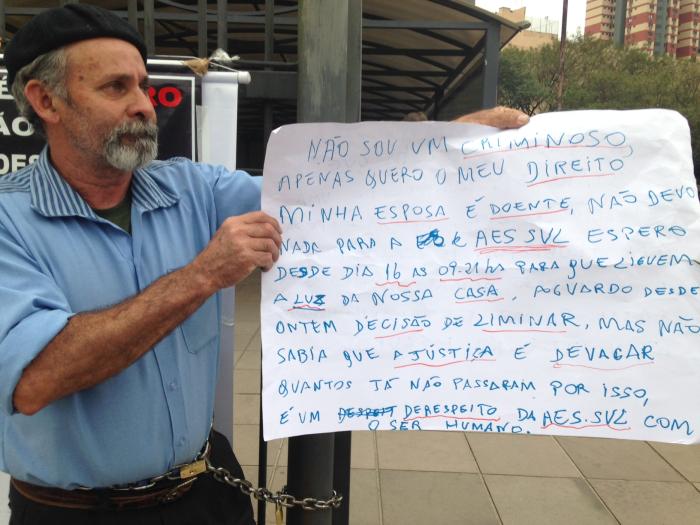 RO
ÃO
DES
NÃO SOU UM CRIMINOSO,
APENAS QUERO O MEU DIREITO
MINHA ESPOSA É DOENTE, NÃO DEVO
NADA PARA A AES SUL ESPERO
DESDE DIA 16 AS 09.21 hs PARA QUE LIGUEM
A LUZ DA NOSSA CASA, AGUARDO DESDE
ONTEM DECISÃO DE LIMINAR, MAS NÃO
SABIA QUE A JÚSTIÇA É DEVAGAR
QUANTOS JÁ NÃO PASSARAM POR ISSO,
É UM DERESPEITO DA AES.SUL COM
O SER HUMANO.